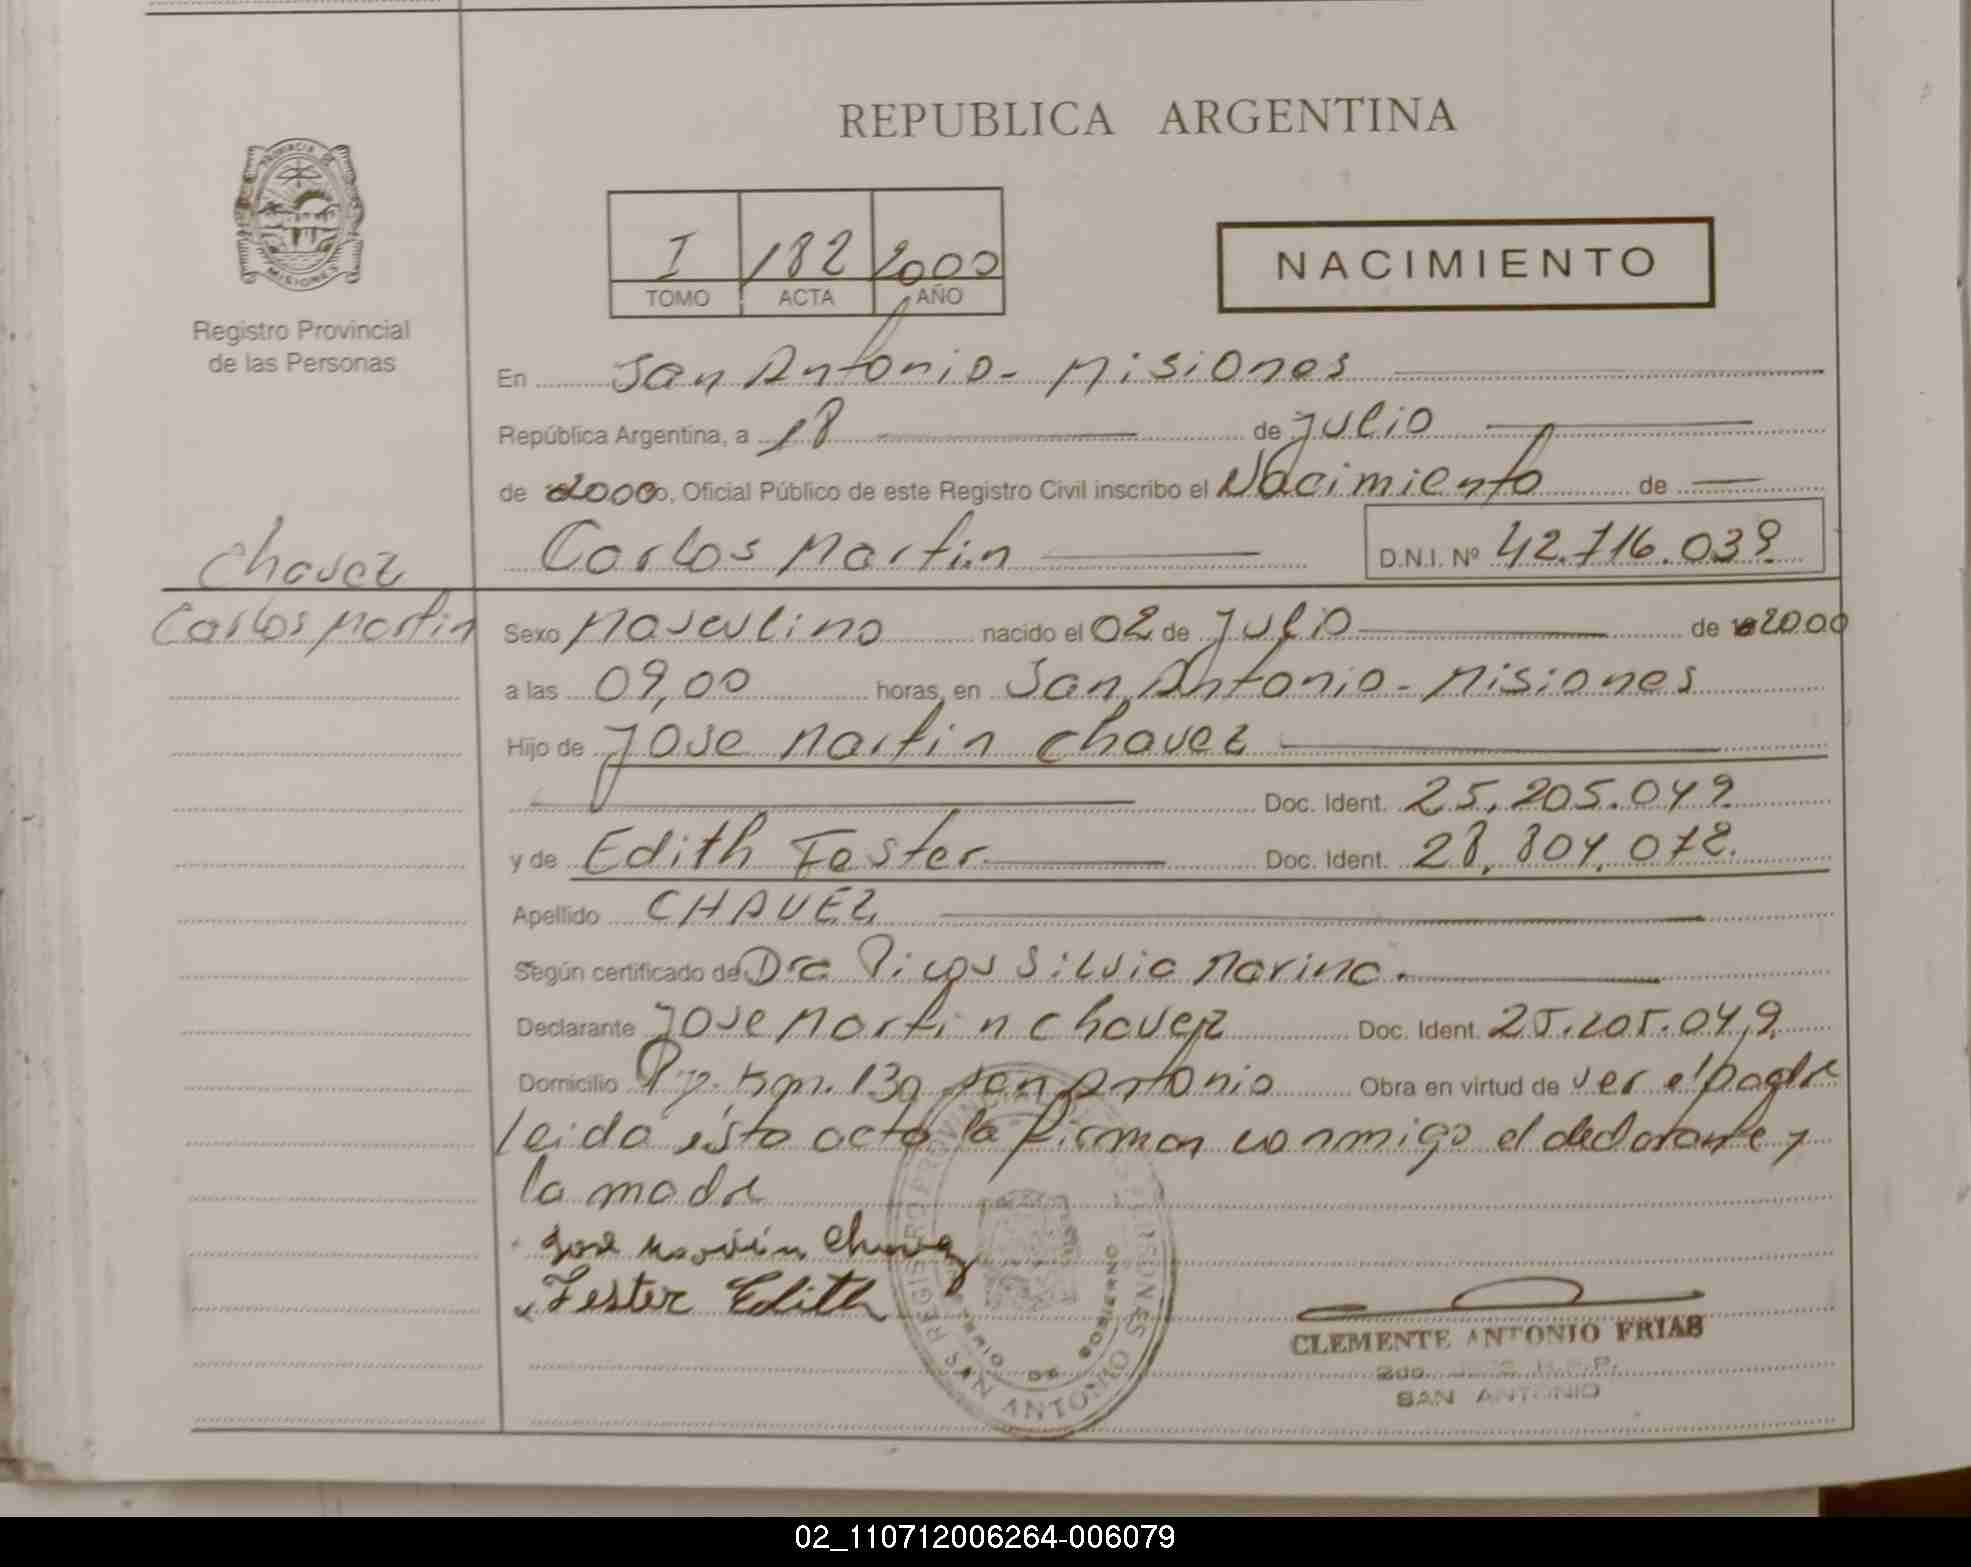 REPUBLICA ARGENTINA
PROVINCIA DE MISIONES
Registro Provincial
de las Personas
I 182 2000
TOMO ACTA AÑO
NACIMIENTO
En San Antonio - Misiones
República Argentina, a 18 de Julio
de 2000, Oficial Público de este Registro Civil inscribo el Nacimiento de
Carlos Martin D.N.I. Nº 42.716.039
Chavez
Carlos Martin
Sexo Masculino nacido el 02 de Julio de 2000
a las 09,00 horas, en San Antonio - Misiones
Hijo de Jose Martin Chavez
Doc. Ident. 25.205.049
y de Edith Fester Doc. Ident. 28.804.078.
Apellido CHAVEZ
Según certificado de Dra Silvia Marina.
Declarante Jose Martin Chavez Doc. Ident. 25.205.049
Domicilio Km. 130 San Antonio Obra en virtud de ser el padre
leida ésta acta la firman conmigo el declarante y
la madre
Jose Martin Chavez
Fester Edith
SAN ANTONIO
MISIONES
DE GOBIERNO
CLEMENTE ANTONIO FRIAS
2do. R.P.P.
SAN ANTONIO
02_110712006264-006079